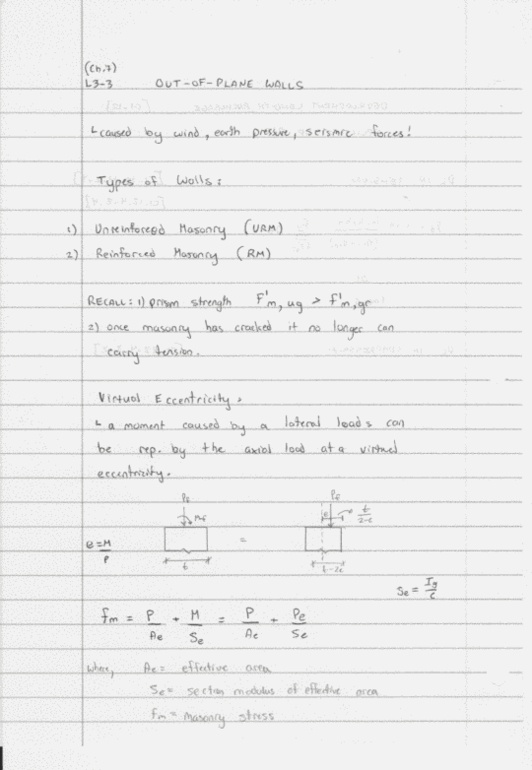 (Ch.7)
L3-3 OUT-OF-PLANE WALLS
↳ caused by wind, earth pressure, seismic forces!
Types of Walls:
1) Unreinforced Masonry (URM)
2) Reinforced Masonry (RM)
RECALL: 1) prism strength f'm,ug > f'm,gr
2) once masonry has cracked it no longer can
carry tension.
Virtual Eccentricity:
↳ a moment caused by a lateral loads can
be rep. by the axial load at a virtual
eccentricity.
Pf Pf
Mf e t/2-e
e = M/P =
t t-2e
Se = Ig/c
fm = P/Ae + M/Se = P/Ae + Pe/Se
where, Ae = effective area
Se = section modulus of effective area
fm = masonry stress